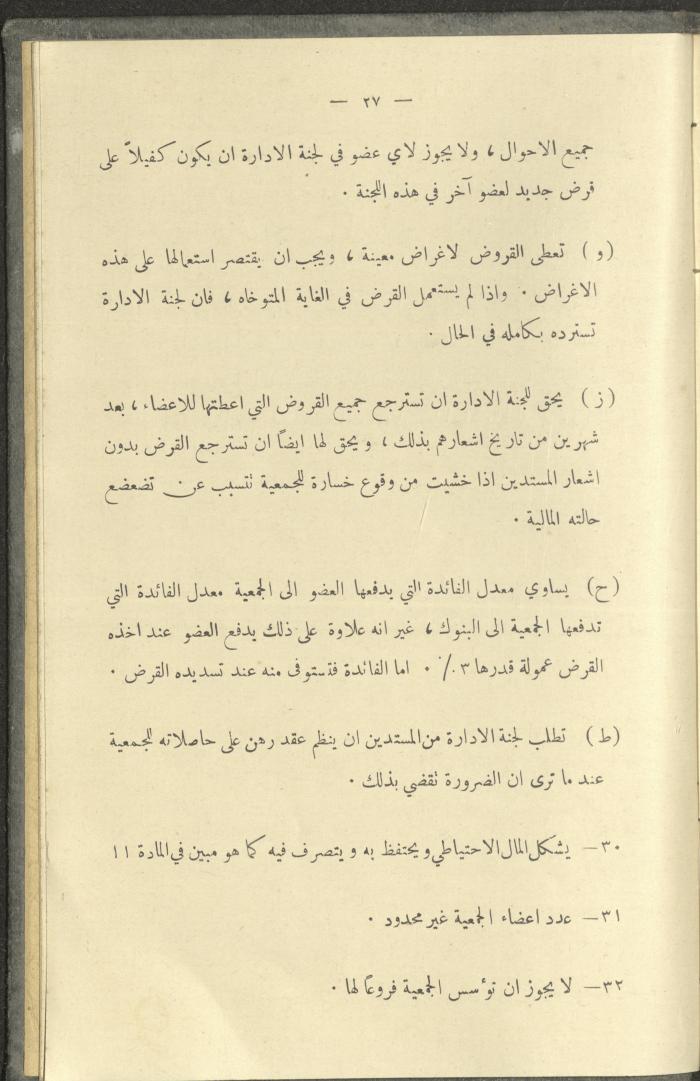 — ٢٧ —
جميع الاحوال ، ولا يجوز لاي عضو في لجنة الادارة ان يكون كفيلاً على
قرض جديد لعضو آخر في هذه اللجنة ٠
(و) تعطى القروض لاغراض معينة ، ويجب ان يقتصر استعمالها على هذه
الاغراض ٠ واذا لم يستعمل القرض في الغاية المتوخاه ، فان لجنة الادارة
تسترده بكامله في الحال ٠
(ز) يحق للجنة الادارة ان تسترجع جميع القروض التي اعطتها للاعضاء ، بعد
شهرين من تاريخ اشعارهم بذلك ، ويحق لها ايضاً ان تسترجع القرض بدون
اشعار المستدين اذا خشيت من وقوع خسارة للجمعية تتسبب عن تضعضع
حالته المالية ٠
(ح) يساوي معدل الفائدة التي يدفعها العضو الى الجمعية معدل الفائدة التي
تدفعها الجمعية الى البنوك ، غير انه علاوة على ذلك يدفع العضو عند اخذه
القرض عمولة قدرها ٣٪ ٠ اما الفائدة فتستوفى منه عند تسديده القرض ٠
(ط) تطلب لجنة الادارة من المستدين ان ينظم عقد رهن على حاصلاته للجمعية
عند ما ترى ان الضرورة تقضي بذلك ٠
٣٠– يشكل المال الاحتياطي ويحتفظ به ويتصرف فيه كما هو مبين في المادة ١١
٣١– عدد اعضاء الجمعية غير محدود ٠
٣٢– لا يجوز ان تؤسس الجمعية فروعاً لها ٠